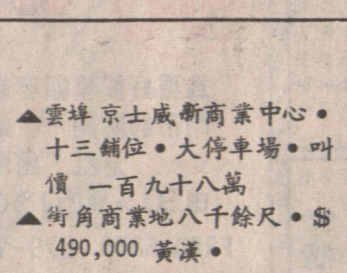 ▲雲埠 京士威新商業中心●
十三鋪位●大停車場●叫
價 一百九十八萬
▲街角商業地八千餘尺●$
490,000 黃漢●